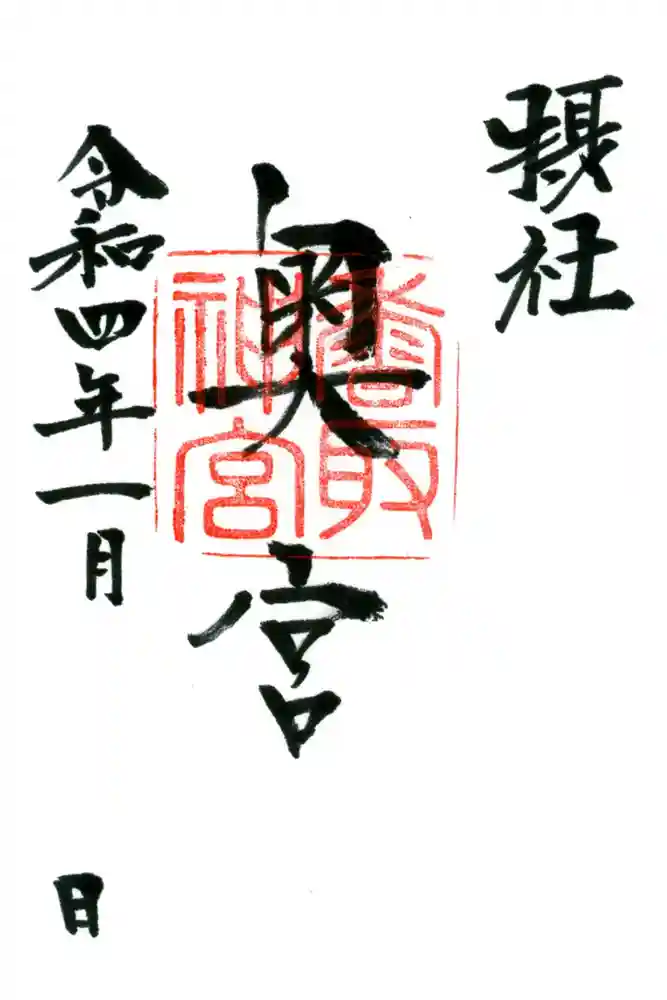 摂社
奥宮
香取
神宮
令和四年一月
日